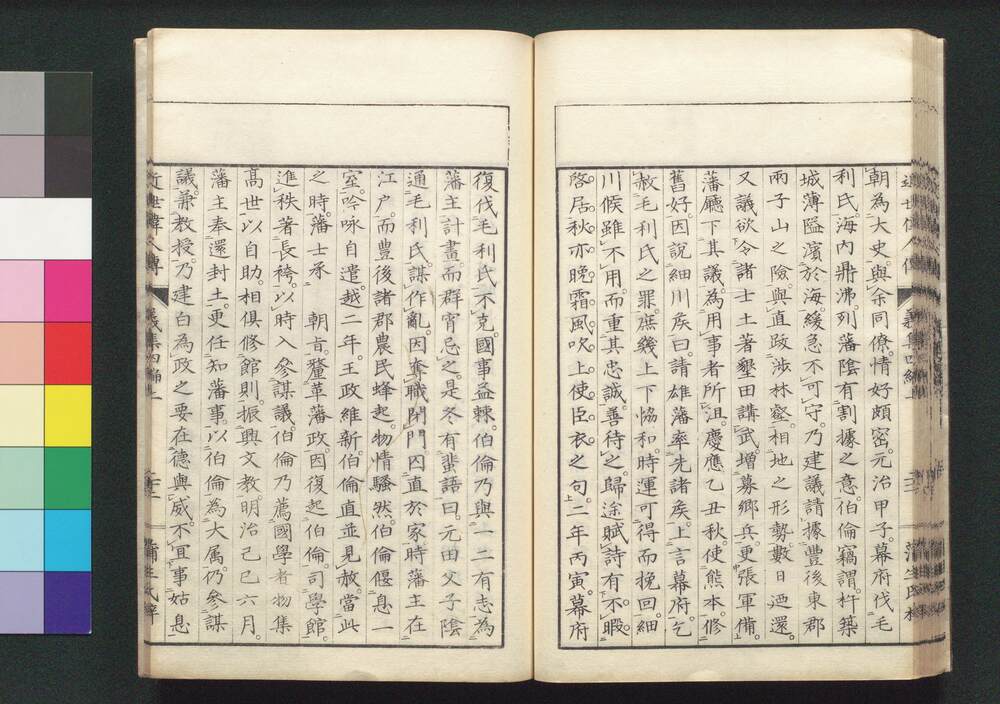 朝為大史。與余同僚。情好頗密。元治甲子。幕府伐毛
利氏。海内鼎沸。列藩陰有割據之意。伯倫竊謂。杵築
城薄隘濱於海。緩急不可守。乃建議請據豐後東郡
兩子山之險。與直政涉林壑。相地之形勢。數日迺還。
又議欲令諸士土著墾田講武。增募鄉兵。更張軍備。
藩廳下其議。為用事者所沮。慶應乙丑秋。使熊本。修
舊好。因說細川矦曰。請雄藩率先諸矦。上言幕府。乞
赦毛利氏之罪。庶幾上下恊和。時運可得而挽回。細
川候雖不用。而重其忠誠。善待之。歸途賦詩有不暇
啓居。秋亦晚。霜風吹上使臣衣之句。二年丙寅。幕府
復伐毛利氏不克。國事益棘。伯倫乃與一二有志為
藩主計畫。而群宵忌之。是冬有蜚語曰。元田父子陰
通毛利氏。謀作亂。因奪職閉門。囚直於家。時藩主在
江戶。而豐後諸郡農民蜂起。物情騷然。伯倫偃息一
室。吟咏自遣。越二年。王政維新。伯倫直並見赦。當此
之時。藩士承 朝旨。釐革藩政。因復起伯倫。司學館。
進秩著長袴。以時入參謀議。伯倫乃薦國學者物集
高世以自助。相俱修館則。振興文教。明治己巳六月。
藩主奉還封土。更任知藩事。以伯倫為大属。仍參謀
議。兼教授。乃建白為政之要在德與威。不宜事姑息
近世偉人傳 義集四編上